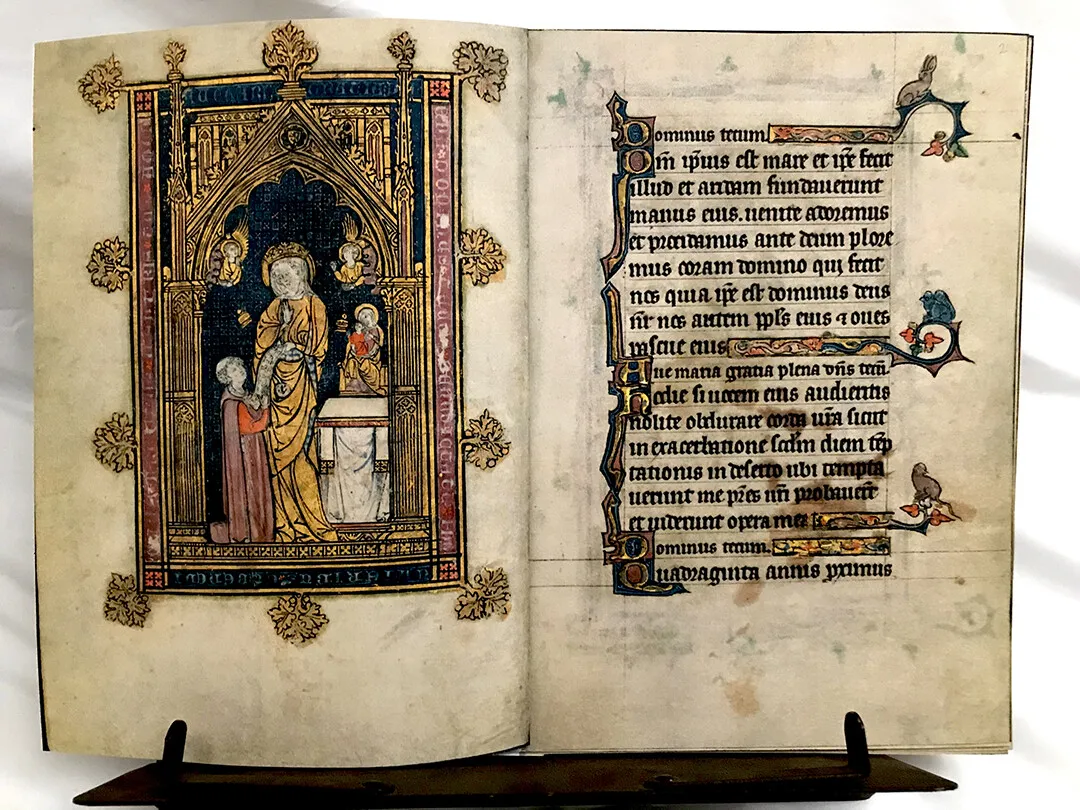 2
Dominus tecum
Qm̄ ip̄ius est mare et ip̄e fecit
illud et aridam fundauerunt
manus eius. uenite adoremus
et procidamus ante deum plore
mus coram domino qui fecit
nos quia ip̄e est dominus deus
nr̄ nos autem pp̄ls eius ⁊ oues
pascue eius
Aue maria gratia plena dn̄s tecū.
Hodie si uocem eius audieritis
nolite obdurare corda ur̄a sicut
in exacerbatione scd̄m diem tēp
tationis in deserto ubi tempta
uerunt me pr̄es nr̄i probauer̄t
et uiderunt opera mea
Dominus tecum.
Quadraginta annis proximus